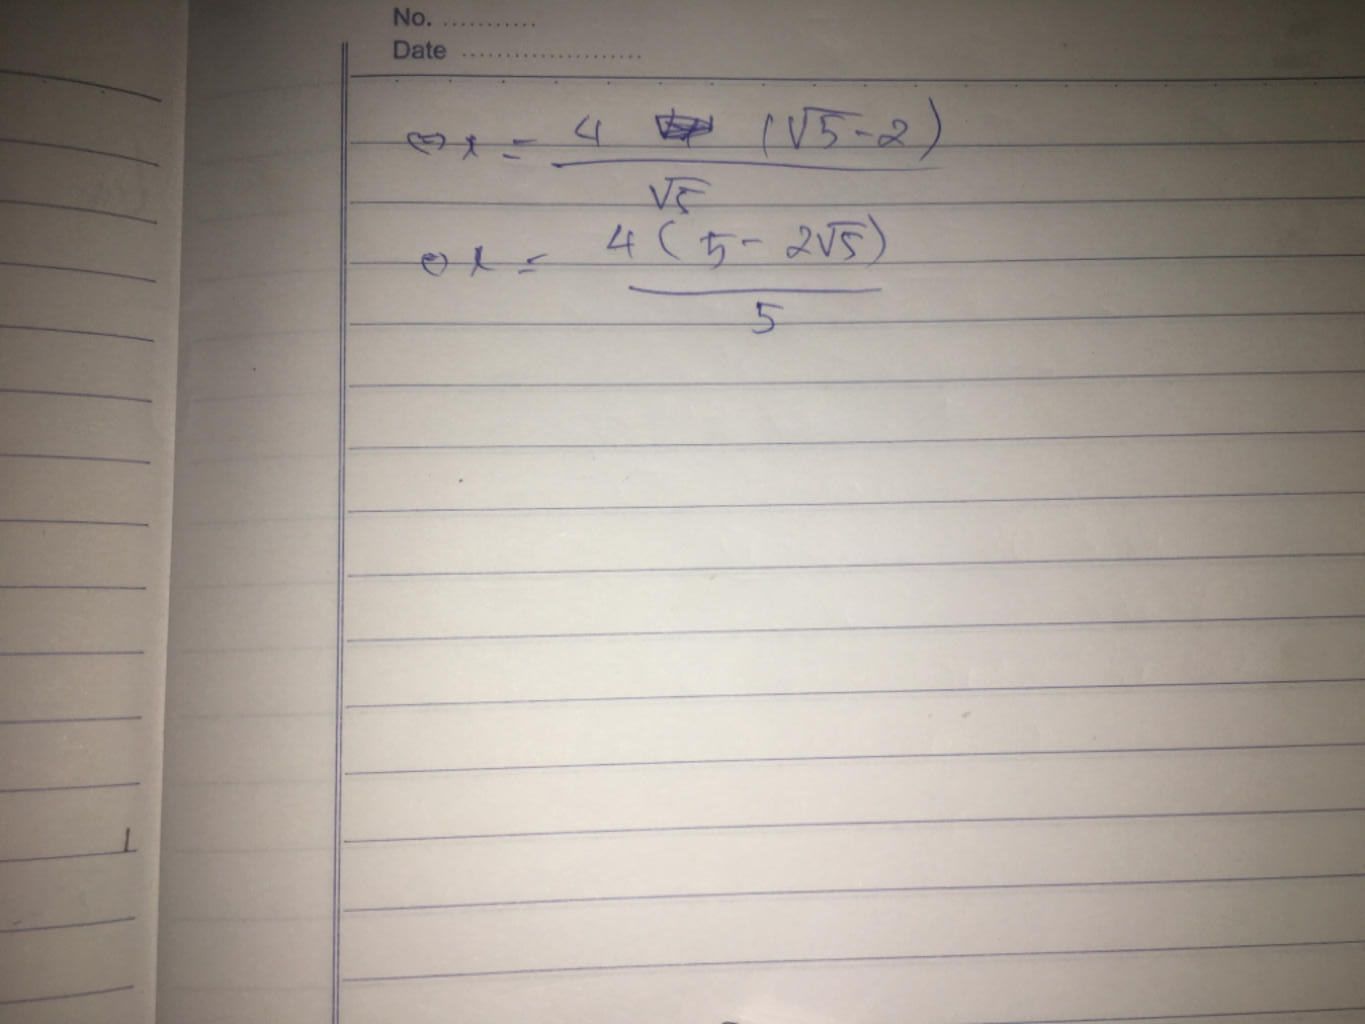 No. ...........
Date .....................
⇔ x = 4 (√5-2)
√5
⇔ x = 4 ( 5 - 2√5)
5
1